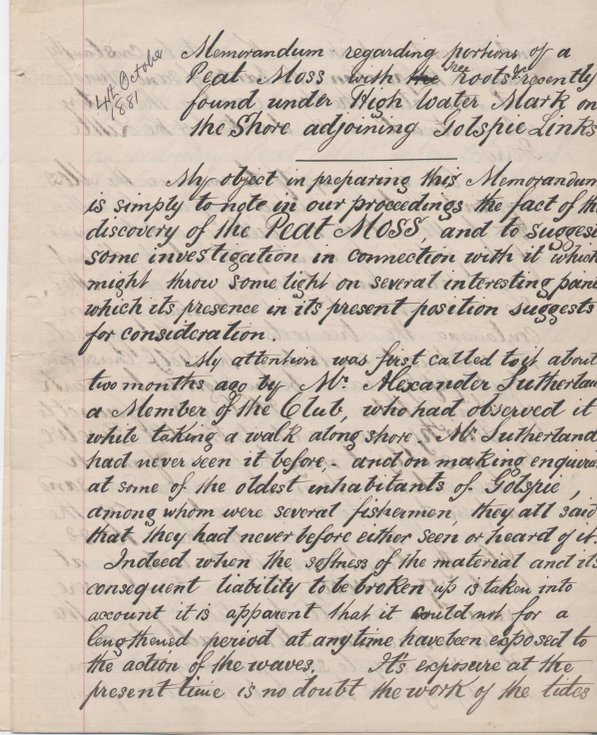 4th October
1881
Memorandum regarding portions of a
Peat Moss with the tree roots &c recently
found under High Water Mark on
the Shore adjoining Golspie Links
My object in preparing this Memorandum
is simply to note in our proceedings the fact of th
discovery of the Peat Moss and to suggest
some investigation in connection with it which
might throw some light on several interesting poin
which its presence in its present position suggests
for consideration.
My attention was first called to it about
two months ago by Mr. Alexander Sutherlan
a Member of the Club, who had observed it
while taking a walk along shore. Mr Sutherland
had never seen it before - and on making enquirie
at some of the oldest inhabitants of Golspie,
among whom were several fishermen, they all said
that they had never before either seen or heard of it.
Indeed when the softness of the material and its
consequent liability to be broken up is taken into
account it is apparent that it could not for a
lengthened period at any time have been exposed to
the action of the waves. It's exposure at the
present time is no doubt the work of the tides